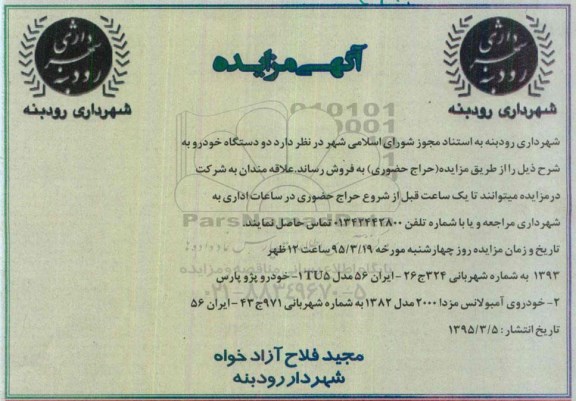 آگهی مزایده
شهرداری رودبنه
شهرداری رودبنه
شهرداری رودبنه به استناد مجوز شورای اسلامی شهر در نظر دارد دو دستگاه خودرو به
شرح ذیل را از طریق مزایده(حراج حضوری) به فروش رساند.علاقه مندان به شرکت
درمزایده میتوانند تا یک ساعت قبل از شروع حراج حضوری در ساعات اداری به
شهرداری مراجعه و یا با شماره تلفن ۰۱۳۴۲۴۴۲۸۰۰ تماس حاصل نمایند.
تاریخ و زمان مزایده روز چهارشنبه مورخه ۹۵/۳/۱۹ ساعت ۱۲ ظهر
۱- خودرو پژو پارس TU5 مدل ۱۳۹۳ به شماره شهربانی ۳۲۴ج۲۶ - ایران ۵۶
۲- خودروی آمبولانس مزدا ۲۰۰۰ مدل ۱۳۸۲ به شماره شهربانی ۹۷۱ج۴۳ - ایران ۵۶
تاریخ انتشار : ۱۳۹۵/۳/۵
مجید فلاح آزاد خواه
شهردار رودبنه
ParsNamadData
۰۲۱-۸۸۳۴۹۶۷۰-۵